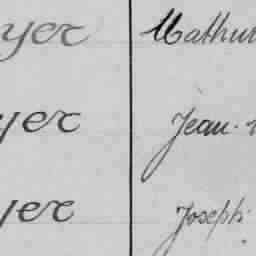 yer Mathur
yer Jean-
yer Joseph